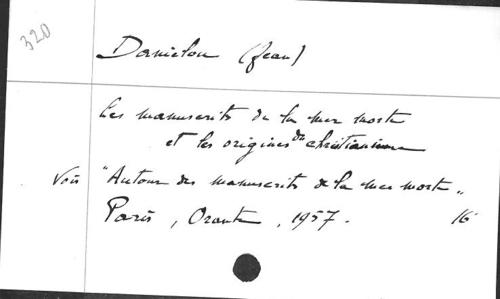 320
Danielou (Jean)
Les manuscrits de la mer morte
et les origines du christianisme
Voir "Autour des manuscrits de la mer morte"
Paris, Orante, 1957. 16